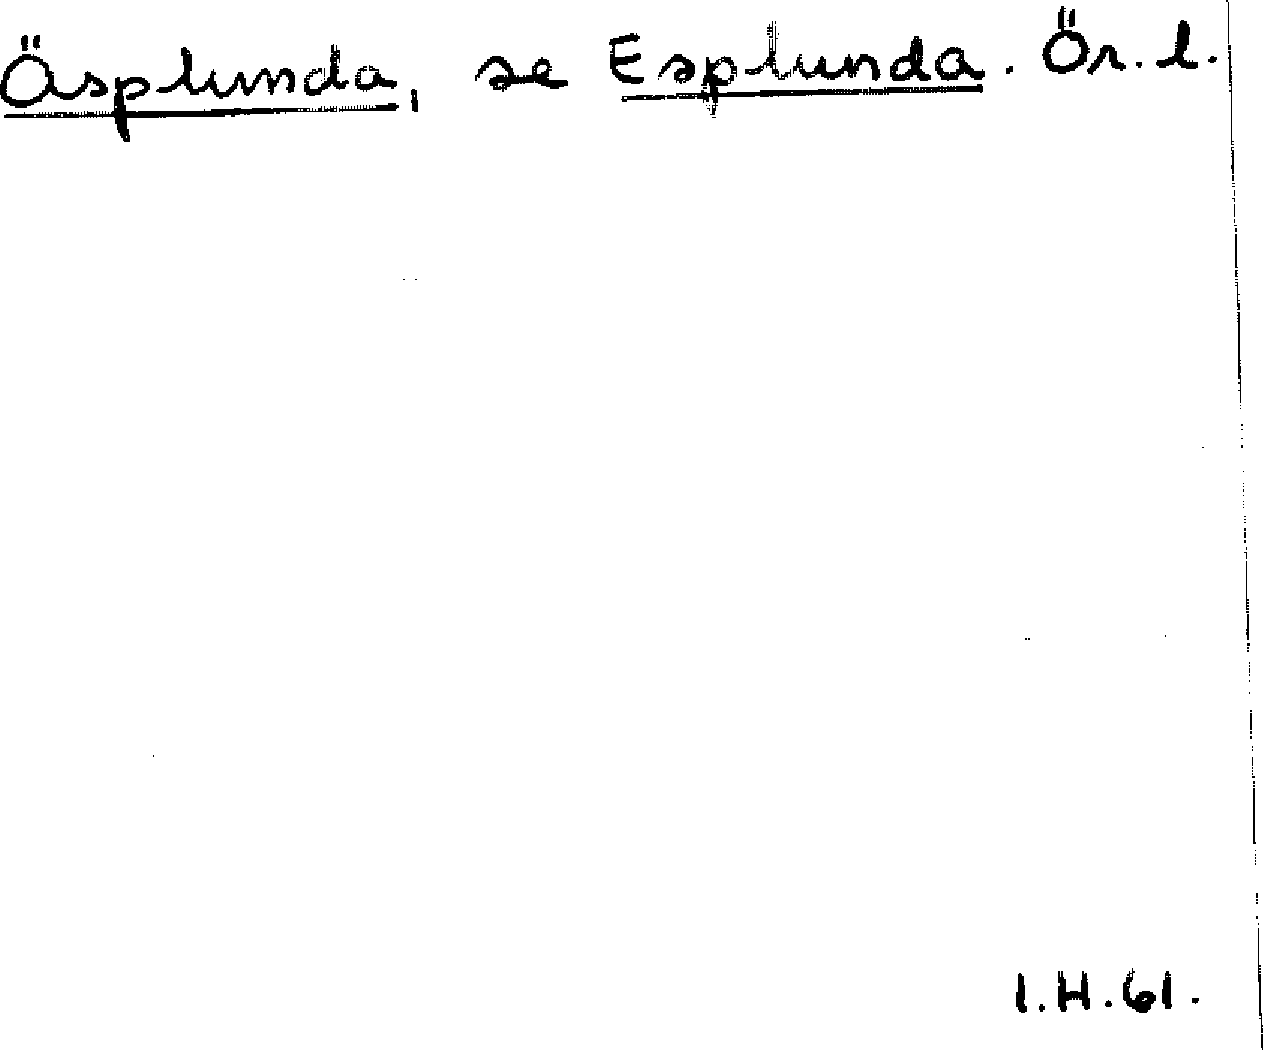 Äsplunda, se Esplunda. Ör. l.
I.H.61.